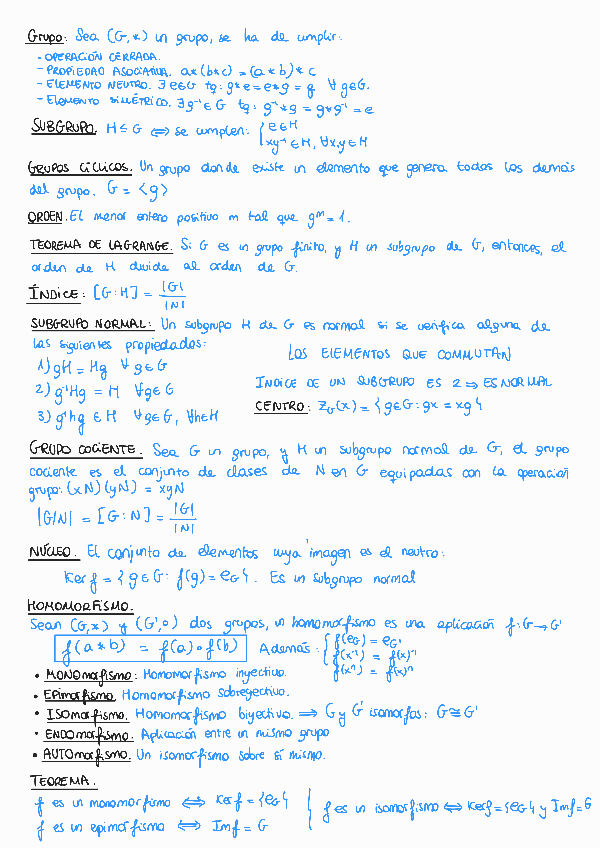 Grupo: Sea (G,*) un grupo, se ha de cumplir:
- OPERACIÓN CERRADA.
- PROPIEDAD ASOCIATIVA. a*(b*c) = (a*b)*c
- ELEMENTO NEUTRO. ∃ e∈G tq: g*e = e*g = g ∀ g∈G.
- ELEMENTO SIMÉTRICO. ∃ g⁻¹∈G tq: g⁻¹*g = g*g⁻¹ = e
SUBGRUPO. H ≤ G ⟺ se cumplen: { e∈H
xy⁻¹∈H, ∀x,y∈H
GRUPOS CÍCLICOS. Un grupo donde existe un elemento que genera todos los demás
del grupo. G = <g>
ORDEN. El menor entero positivo m tal que gᵐ = 1.
TEOREMA DE LAGRANGE. Si G es un grupo finito, y H un subgrupo de G, entonces, el
orden de H divide al orden de G.
ÍNDICE: [G:H] = |G| / |N|
SUBGRUPO NORMAL: Un subgrupo H de G es normal si se verifica alguna de
las siguientes propiedades:
1) gH = Hg ∀ g∈G
2) g⁻¹Hg = H ∀g∈G
3) g⁻¹hg ∈ H ∀g∈G, ∀h∈H
LOS ELEMENTOS QUE CONMUTAN
INDICE DE UN SUBGRUPO ES 2 ⟹ ES NORMAL
CENTRO: Z_G(x) = {g∈G: gx = xg}
GRUPO COCIENTE. Sea G un grupo, y H un subgrupo normal de G, el grupo
cociente es el conjunto de clases de N en G equipadas con la operación
grupo: (xN)(yN) = xyN
|G/N| = [G:N] = |G| / |N|
NÚCLEO. El conjunto de elementos cuya imagen es el neutro:
Ker f = {g∈G: f(g) = e_G'}. Es un subgrupo normal
HOMOMORFISMO.
Sean (G,*) y (G',∘) dos grupos, un homomorfismo es una aplicación f: G→G'
f(a*b) = f(a)∘f(b) Además: { f(e_G) = e_G'
f(x⁻¹) = f(x)⁻¹
f(xⁿ) = f(x)ⁿ
• MONOmorfismo: Homomorfismo inyectivo.
• EPImorfismo. Homomorfismo sobreyectivo.
• ISOmorfismo. Homomorfismo biyectivo. ⟹ G y G' isomorfos: G≅G'
• ENDOmorfismo. Aplicación entre un mismo grupo
• AUTOmorfismo. Un isomorfismo sobre sí mismo.
TEOREMA.
f es un monomorfismo ⟺ Ker f = {e_G}
f es un epimorfismo ⟺ Im f = G
f es un isomorfismo ⟺ Ker f = {e_G} y Im f = G